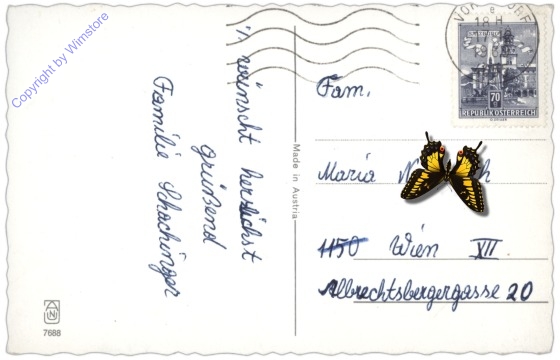 Copyright by Wimstore
'n wünscht herzlichst
grüßend
Familie Schachinger
7688
Made in Austria
18 H
SALZBURG
70
REPUBLIK ÖSTERREICH
Fam.
Maria
1150 Wien XII
Albrechtsbergergasse 20